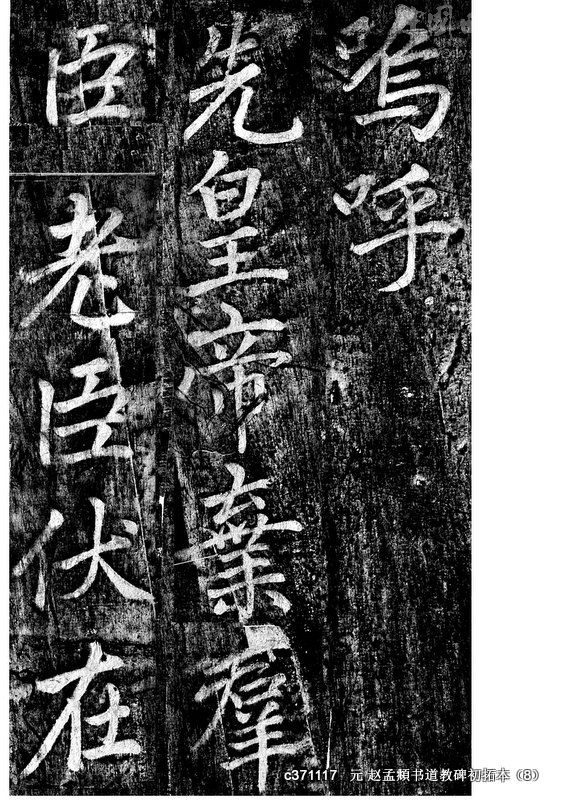 嗚呼
先皇帝棄羣
臣老臣伏在
c371117 元 赵孟頫书道教碑初拓本（8）